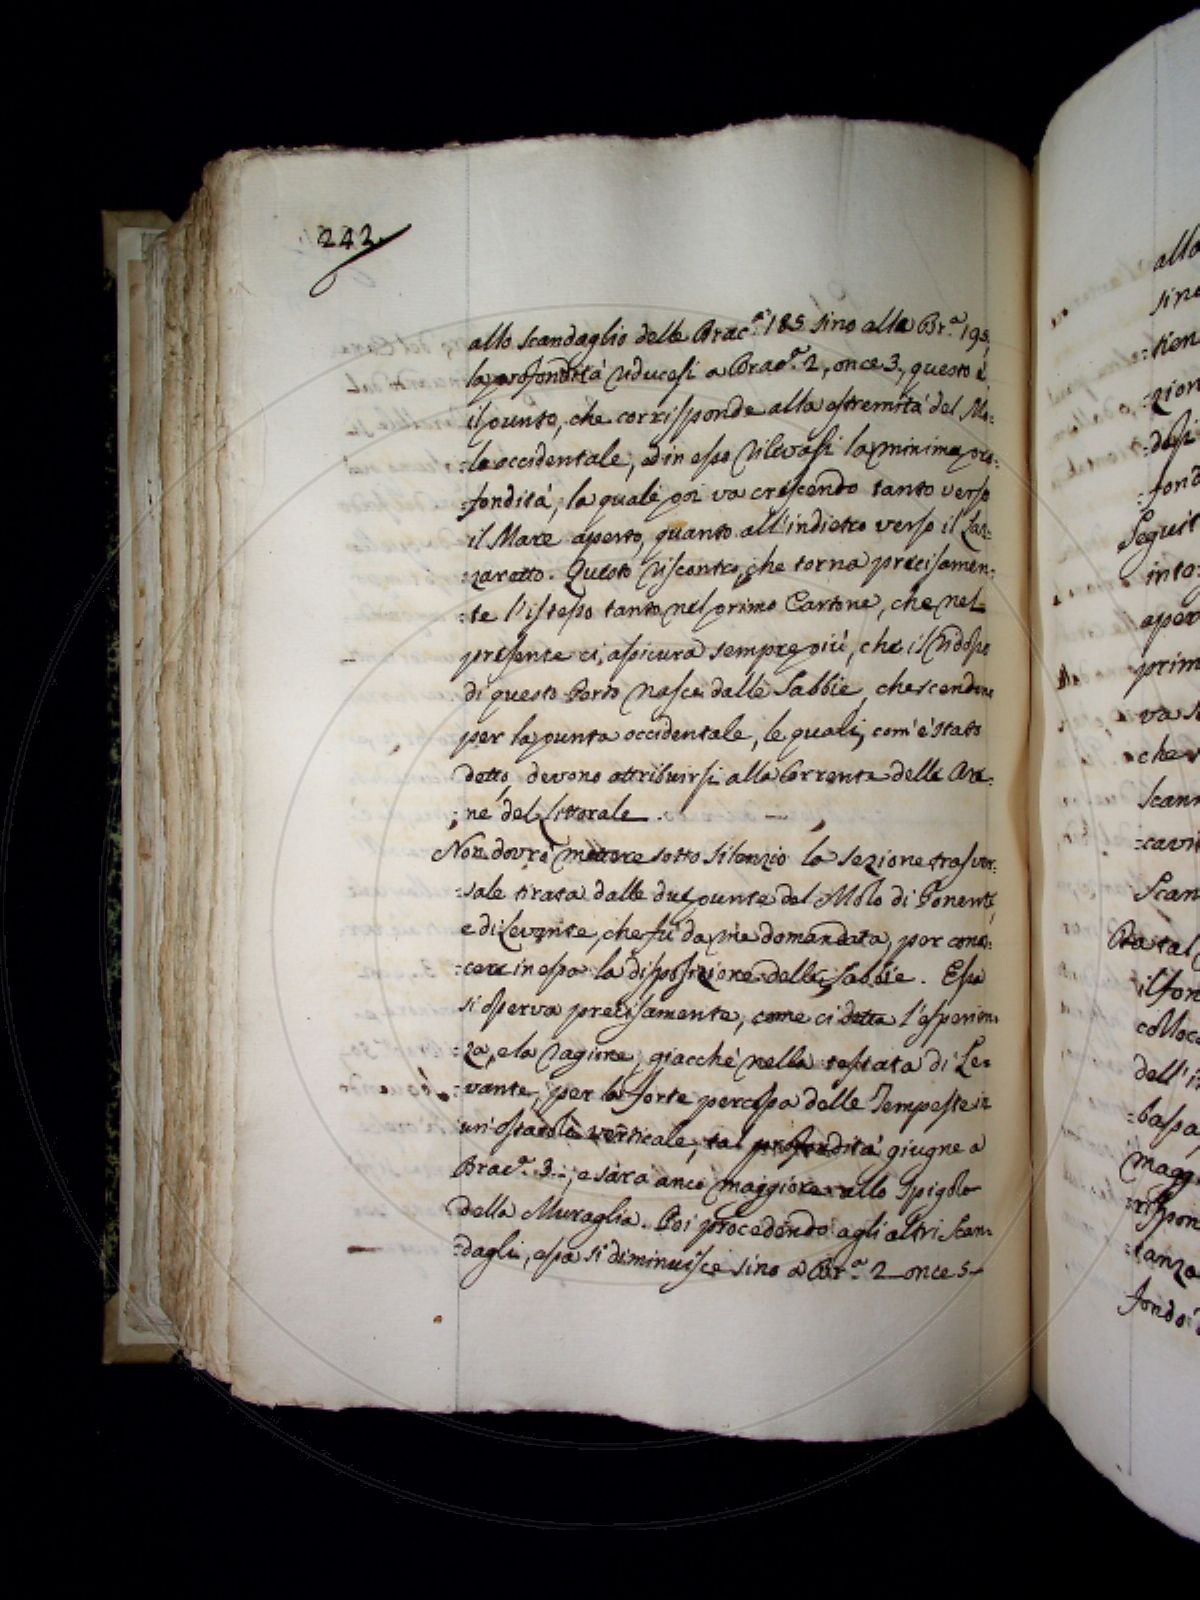 242.
allo scandaglio delle Brac.ª 185 sino alla Br.ª 195,
la profondità riducesi a Brac.ª 2, once 3, questo è
il punto, che corrisponde alla estremità del Mo:
:lo occidentale, ed in esso rilevasi la minima pro:
:fondità, la quale poi va crescendo tanto verso
il Mare aperto, quanto all'indietro verso il Laz:
:zaretto. Questo riscontro, che torna precisamen:
:te l'istesso tanto nel primo Cartone, che nel
presente ci assicura sempre più, che il ridosso
di questo Porto nasce dalle Sabbie, che scendono
per la punta occidentale, le quali, com'è stato
detto, devono attribuirsi alla Corrente delle Are:
:ne del Littorale.
Non dovrò mettere sotto silenzio la sezione trasver:
:sale tirata dalle due punte del Molo di Ponente,
e di Levante, che fù da me domandata, per cono:
:scere in essa la disposizione delle Sabbie. Essa
si osserva precisamente, come ci detta l'esperien:
:za, e la ragione, giacchè nella testata di Le:
:vante, per la forte percossa delle Tempeste in
un'ostacolo verticale, tal profondità giugne a
Brac.ª 3.-, e sarà anco maggiore allo Spigolo
della Muraglia. Poi procedendo agli altri Scan:
:dagli, essa si diminuisce sino a Br.ª 2 once 5
alla
sino
:zion
:fond
Seguit
into
aper
prim
va s
che
Scan
:cavi
Scan
Da tal
il fon
colloc
dell'i
:bassa
magg
rispon
:tanza
fondo